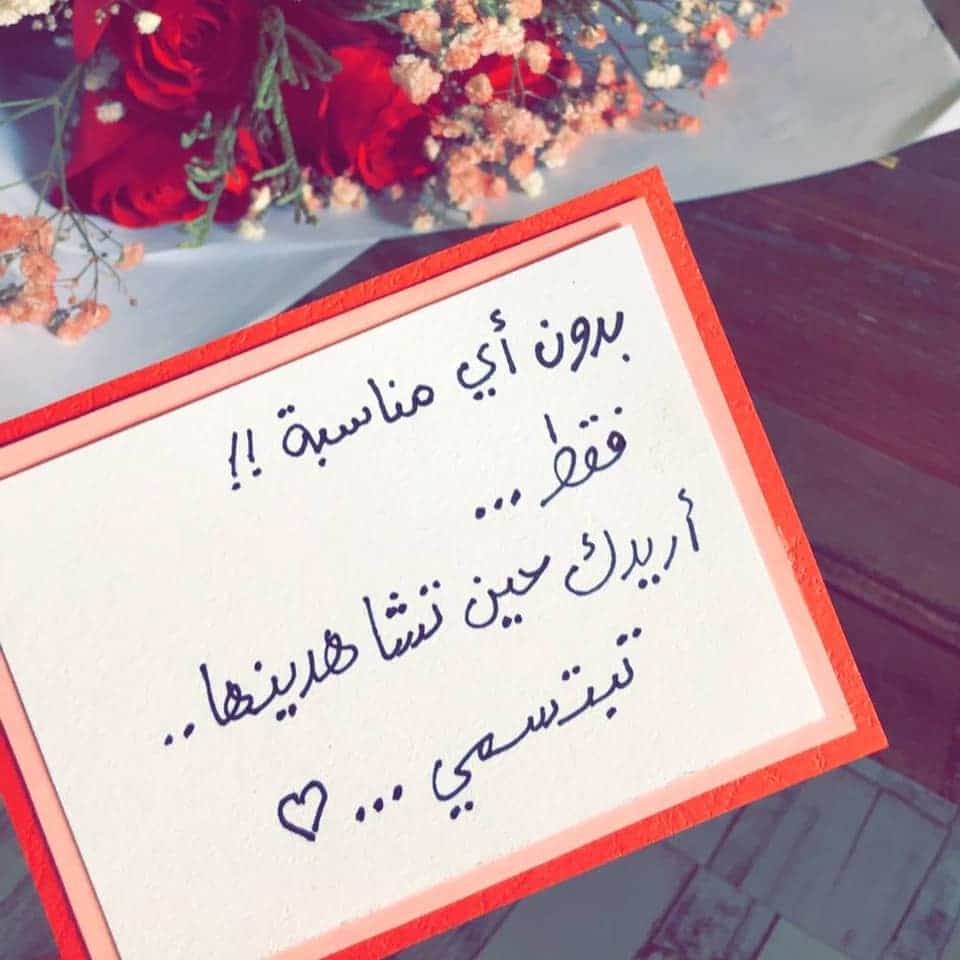 بدون أي مناسبة !!
فقط ...
أريدك حين تشاهدينها ..
تبتسمي ... ♡